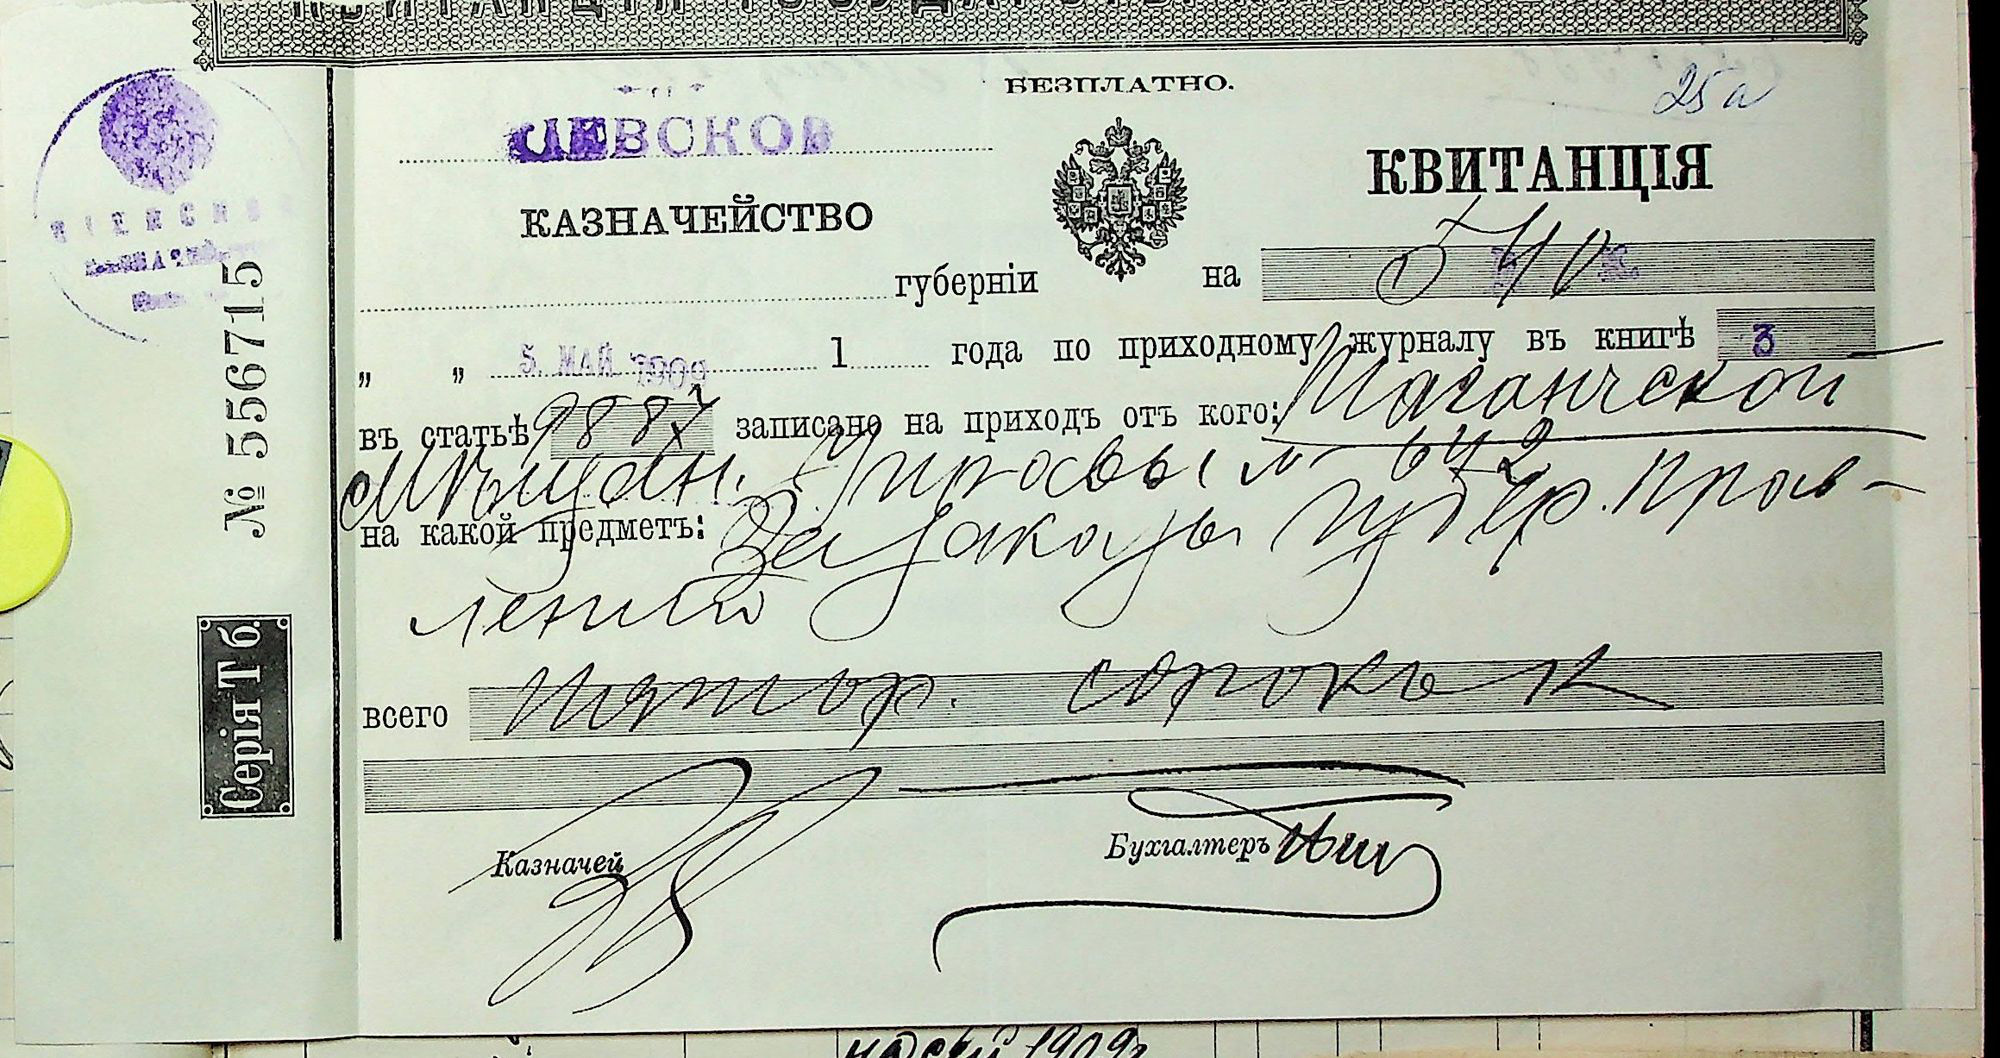 КВИТАНЦІЯ ГОСУДАРСТВ.
БЕЗПЛАТНО.
25а
КАЗНАЧЕЙСТВО
КВИТАНЦІЯ
губерніи
на 5 40
„ „ 5. МАЙ 1909 1 года по приходному журналу въ книгѣ 3
въ статьѣ 9887 записано на приходъ отъ кого: Таганчской
Мѣщан. Управы № 642
на какой предметъ: За указы Губер. Прав-
ленія
всего Пять р. сорокъ к
Казначей
Бухгалтеръ
№ 556715
Серія Т б.
1909 г